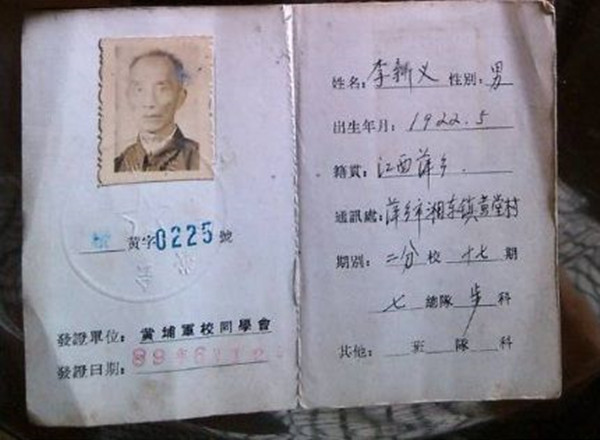 黄字0225號
發證單位：黃埔軍校同學會
發證日期：
姓名：李新义 性別：男
出生年月：1922.5
籍貫：江西萍乡.
通訊處：萍乡市湘东镇黄堂村
期別：二分校 十七期
七總隊步科
其他：班 隊 科